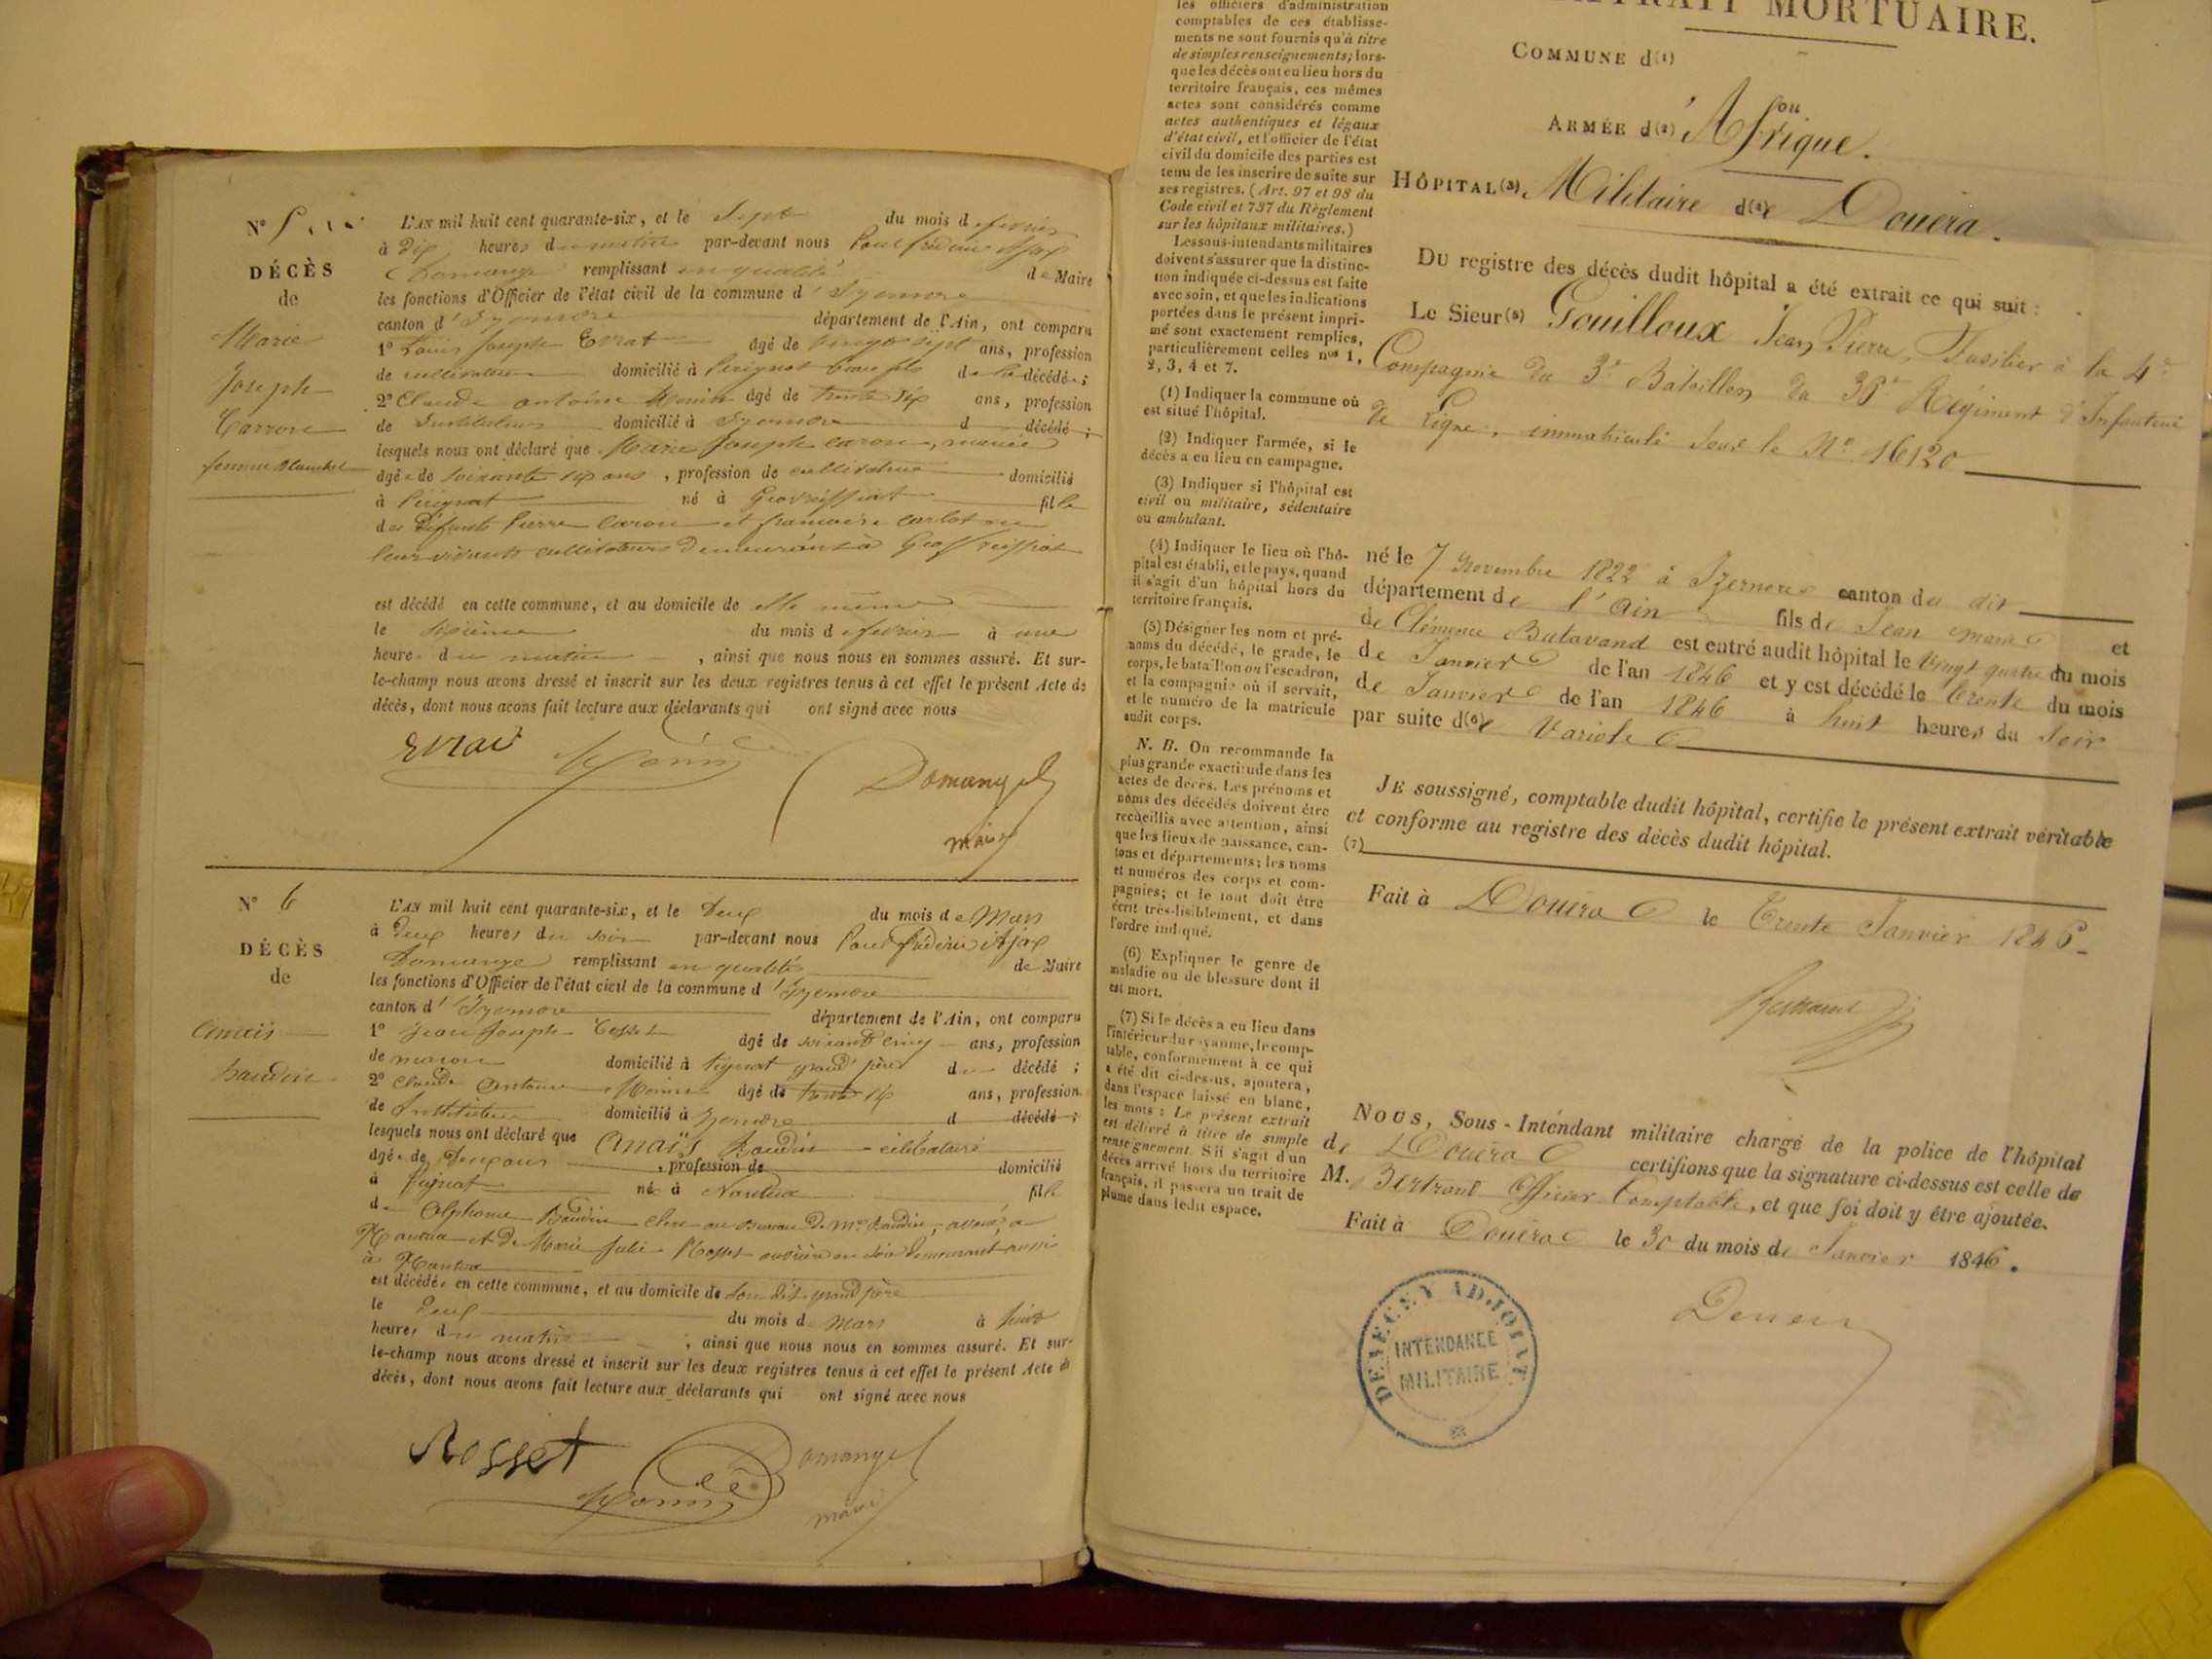 N° 5
DÉCÈS
de
Marie
Joseph
Carron
femme Blanchet
L'AN mil huit cent quarante-six, et le Sept du mois de février
à dix heures du matin par-devant nous Paul frédéric Ajax
Domange remplissant en qualité de Maire
les fonctions d'Officier de l'état civil de la commune d'Izernore
canton d'Izernore département de l'Ain, ont comparu
1° Louis Joseph Evrat âgé de vingt sept ans, profession
de cultivateur domicilié à Pérignat beau fils de la décédée;
2° Claude antoine Monin âgé de trente six ans, profession
de Instituteur domicilié à Izernore d décédé;
lesquels nous ont déclaré que Marie Joseph caron, mariée
âgée de soixante ans, profession de cultivatrice domicilié
à Pérignat né à Geovreissiat fille
des défunts Pierre Caron et francoise
leur vivants cultivateurs demeurant à Geovreissiat
est décédé en cette commune, et au domicile de elle même
le sixième du mois de fevrier à une
heure du matin, ainsi que nous nous en sommes assuré. Et sur-
le-champ nous avons dressé et inscrit sur les deux registres tenus à cet effet le présent Acte de
décès, dont nous avons fait lecture aux déclarants qui ont signé avec nous
Evrat Monin Domange
maire
N° 6
DÉCÈS
de
Anais
Baudin
L'AN mil huit cent quarante-six, et le Deux du mois de Mars
à Deux heures du soir par-devant nous Paul frédéric Ajax
Domange remplissant en qualité de Maire
les fonctions d'Officier de l'état civil de la commune d'Izernore
canton d'Izernore département de l'Ain, ont comparu
1° Jean Joseph Rosset âgé de soixante cinq ans, profession
de maçon domicilié à Tignat grand père du décédé;
2° Claude Antoine Monin âgé de trente six ans, profession
de Instituteur domicilié à Izernore d décédé;
lesquels nous ont déclaré que Anaïs Baudin célibataire
âgée de Deux ans, profession de domicilié
à Tignat né à Nantua fille
de Alphonse Baudin clerc au Bureau De Me Baudin, avoué, a
Nantua et De Marie Julie Rosset ouvrière en soie Demeurant aussi
à Nantua
est décédée en cette commune, et au domicile de son dit grand père
le Deux du mois de Mars à huit
heures du matin, ainsi que nous nous en sommes assuré. Et sur-
le-champ nous avons dressé et inscrit sur les deux registres tenus à cet effet le présent Acte de
décès, dont nous avons fait lecture aux déclarants qui ont signé avec nous
Rosset Monin Domange
maire
les officiers d'administration
comptables de ces établisse-
ments ne sont fournis qu'à titre
de simples renseignements; lors-
que les décès ont eu lieu hors du
territoire français, ces mêmes
actes sont considérés comme
actes authentiques et légaux
d'état civil, et l'officier de l'état
civil du domicile des parties est
tenu de les inscrire de suite sur
ses registres. (Art. 97 et 98 du
Code civil et 737 du Règlement
sur les hôpitaux militaires.)
Les sous-intendants militaires
doivent s'assurer que la distinc-
tion indiquée ci-dessus est faite
avec soin, et que les indications
portées dans le présent impri-
mé sont exactement remplies,
particulièrement celles nos 1,
2, 3, 4 et 7.
(1) Indiquer la commune où
est situé l'hôpital.
(2) Indiquer l'armée, si le
décès a eu lieu en campagne.
(3) Indiquer si l'hôpital est
civil ou militaire, sédentaire
ou ambulant.
(4) Indiquer le lieu où l'hô-
pital est établi, et le pays, quand
il s'agit d'un hôpital hors du
territoire français.
(5) Désigner les nom et pré-
noms du décédé, le grade, le
corps, le bataillon ou l'escadron,
et la compagnie où il servait,
et le numéro de la matricule
audit corps.
N. B. On recommande la
plus grande exactitude dans les
actes de décès. Les prénoms et
noms des décédés doivent être
recueillis avec attention, ainsi
que les lieux de naissance, can-
tons et départements; les noms
et numéros des corps et com-
pagnies; et le tout doit être
écrit très-lisiblement, et dans
l'ordre indiqué.
(6) Expliquer le genre de
maladie ou de blessure dont il
est mort.
(7) Si le décès a eu lieu dans
l'intérieur du royaume, le comp-
table, conformément à ce qui
a été dit ci-dessus, ajoutera,
dans l'espace laissé en blanc,
les mots : Le présent extrait
est délivré à titre de simple
renseignement. S'il s'agit d'un
décès arrivé hors du territoire
français, il passera un trait de
plume dans ledit espace.
EXTRAIT MORTUAIRE.
COMMUNE d(1)
ou
ARMÉE d(2)'Afrique.
HÔPITAL(3) Militaire d(4)e Douéra.
Du registre des décès dudit hôpital a été extrait ce qui suit :
Le Sieur(5) Gouilloux Jean Pierre, Fusilier à la 4e
Compagnie du 3e Bataillon du 36e Régiment d'Infanterie
de Ligne, immatriculé sous le N° 16120
né le 7 Novembre 1822 à Izernore canton du dit
département de l'Ain fils de Jean Marie et
de Clémence Balavand est entré audit hôpital le Vingt quatre du mois
de Janvier de l'an 1846 et y est décédé le trente du mois
de Janvier de l'an 1846 à huit heures du soir
par suite d(6)e Variole
JE soussigné, comptable dudit hôpital, certifie le présent extrait véritable
et conforme au registre des décès dudit hôpital.
(7)
Fait à Douéra le Trente Janvier 1846
Bertrand
NOUS, Sous-Intendant militaire chargé de la police de l'hôpital
de Douéra certifions que la signature ci-dessus est celle de
M. Bertrand Officier Comptable, et que foi doit y être ajoutée.
Fait à Douéra le 30 du mois de Janvier 1846.
ADJOINT
INTENDANCE
MILITAIRE